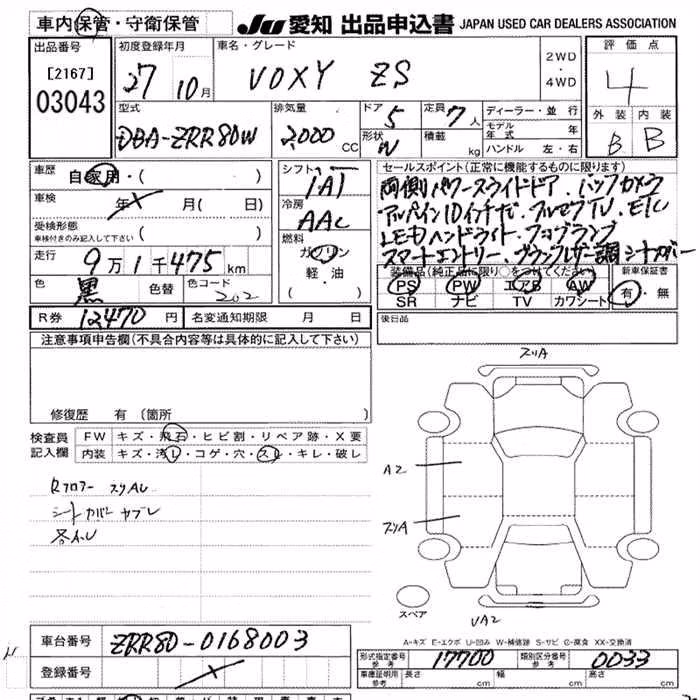 車内保管・守衛保管 JU 愛知 出品申込書 JAPAN USED CAR DEALERS ASSOCIATION
出品番号 初度登録年月 車名・グレード 2WD・4WD 評価点
[2167] 27 10月 VOXY ZS 4
03043
型式 排気量 ドア 5 定員 7人 ディーラー・並行 外装 内装
DBA-ZRR80W 2,000 CC 形状 W 積載 kg モデル年式 年 B B
ハンドル 左・右
車歴 自家用・( ) シフト IAT セールスポイント(正常に機能するものに限ります)
車検 年 月( 日) 冷房 AAC 両側パワースライドドア、バックカメラ
受検形態 アルパイン10インチナビ、フルセグTV、ETC
車検付きのみ記入して下さい ( ) 燃料 LEDヘッドライト、フォグランプ
走行 9万1千475km ガソリン スマートエントリー、ブラックレザー調シートカバー
軽・油
色 黒 色替 色コード 202 ( ) 装備品(純正品に限り○をつけてください) 新車保証書
PS PW エアB AW 有・無
SR ナビ TV カワシート
R券 12470円 名変通知期限 月 日 後日品
注意事項申告欄(不具合内容等は具体的に記入して下さい)
修復歴 有 (箇所 )
検査員記入欄 FW キズ・飛石・ヒビ割・リペア跡・X要
内装 キズ・汚レ・コゲ・穴・スレ・キレ・破レ
スリA
A2
Rフロアー スリAU
シートカバー ヤブレ スリA
各A.U
スペア
UA2
A-キズ E-エクボ U-凹み W-補修跡 S-サビ C-腐食 XX-交換済
車台番号 ZRR80-0168003
登録番号
形式指定番号 参考 17700 類別区分番号 参考 0033
車庫証明用 参考 長さ cm 幅 cm 高さ cm